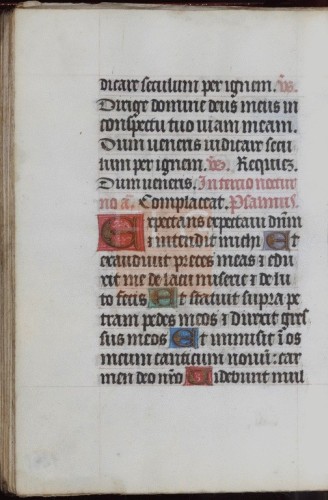 dicare seculum per ignem. V.
Dirige domine deus meus in
conspectu tuo viam meam.
Dum veneris iudicare secu
lum per ignem. V. Requiez.
Dum veneris. In tercio noctur
no a. Complaceat. Psalmus.
Expectans expectavi dnm
⁊ intendit michi Et
exaudivit preces meas ⁊ edu
xit me de lacu miserie ⁊ de lu
to fecis Et statuit supra pe
tram pedes meos ⁊ direxit gres
sus meos Et inmisit i os
meum canticum novu: car
men deo nro Videbunt mul